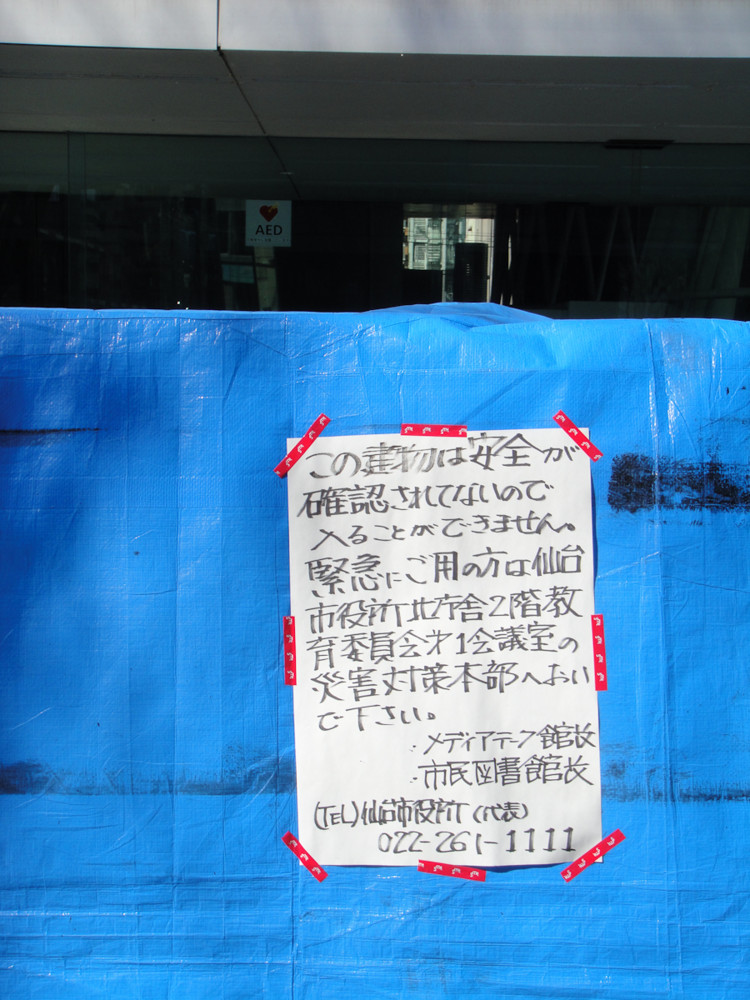 AED
この建物は安全が
確認されてないので
入ることができません。
緊急にご用の方は仙台
市役所北庁舎2階教
育委員会才1会議室の
災害対策本部へおい
で下さい。
・メディアテーク館長
・市民図書館長
(TEL)仙台市役所(代表)
022-261-1111